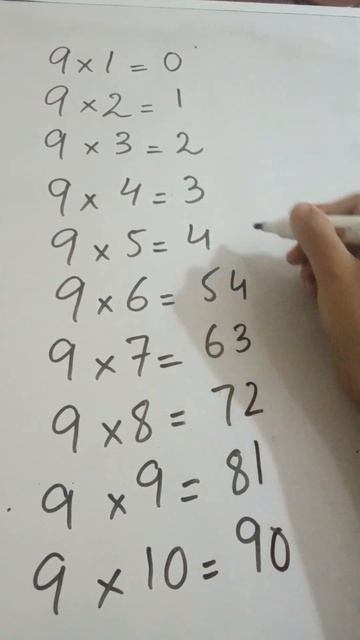 9 × 1 = 0
9 × 2 = 1
9 × 3 = 2
9 × 4 = 3
9 × 5 = 4
9 × 6 = 54
9 × 7 = 63
9 × 8 = 72
9 × 9 = 81
9 × 10 = 90